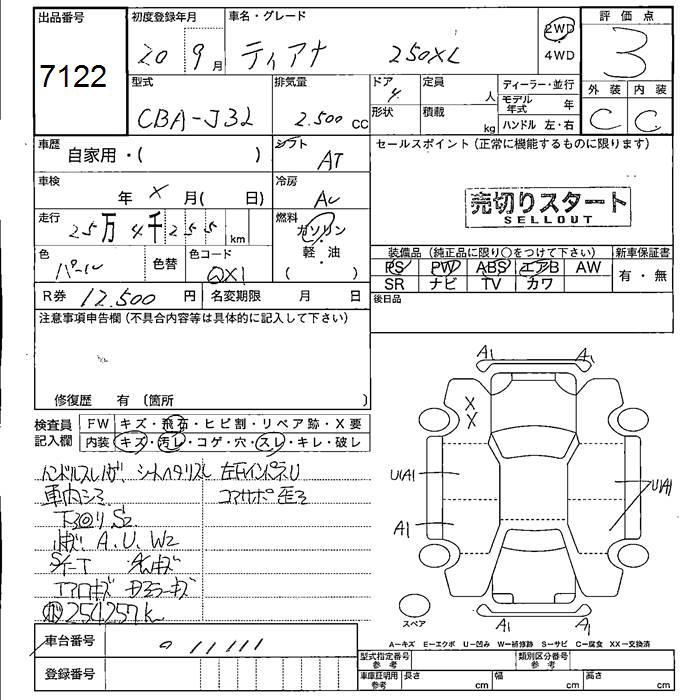 出品番号
7122
初度登録年月
20 9月
車名・グレード
ティアナ 250XL
2WD
4WD
評価点
3
外装 内装
C C
型式
CBA-J32
排気量
2.500 cc
ドア
4
形状
定員
人
積載
kg
ディーラー・並行
モデル年式 年
ハンドル 左・右
車歴
自家用・( )
シフト
AT
車検
年 X 月( 日)
冷房
AC
走行
25万4千255 km
燃料
ガソリン
・
軽・油
( )
色
パール
色替
色コード
QX1
R券 12.500 円
名変期限 月 日
セールスポイント(正常に機能するものに限ります)
売切りスタート
SELLOUT
装備品(純正品に限り○をつけて下さい)
新車保証書
PS PW ABS エアB AW
SR ナビ TV カワ
有・無
後日品
注意事項申告欄(不具合内容等は具体的に記入して下さい)
修復歴 有 〔箇所 〕
検査員記入欄
FW キズ・飛石・ヒビ割・リペア跡・X要
内装 キズ・汚レ・コゲ・穴・スレ・キレ・破レ
ハンドルスレ シートヘタリスレ
車内シミ
A.U.W2
254257k
A1 A1
X
X
U(A)
U(A)
A1
A1 A1
スペア
A=キズ E=エクボ U=凹み W=補修跡 S=サビ C=腐食 XX=交換済
車台番号
011111
登録番号
型式指定番号
参考
類別区分番号
参考
車庫証明用
参考
長さ cm
幅 cm
高さ cm